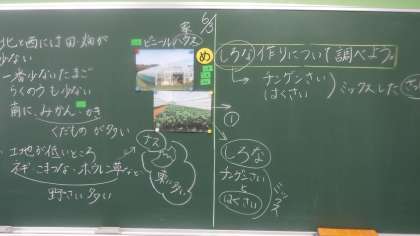 北と西には田・畑が
少ない
一番少ないたまご
らくのうも少ない
南に、みかん・かき
くだもの が多い
土地が低いところ
ネギ こまつな・ホウレン草など
野さい多い
東
ビニールハウス
ナス
東に多い
6/3
め
しろな作りについて調べよう。
チンゲンさい
はくさい
ミックスした
①
しろな
チンゲンさい
と
はくさい
ミックス